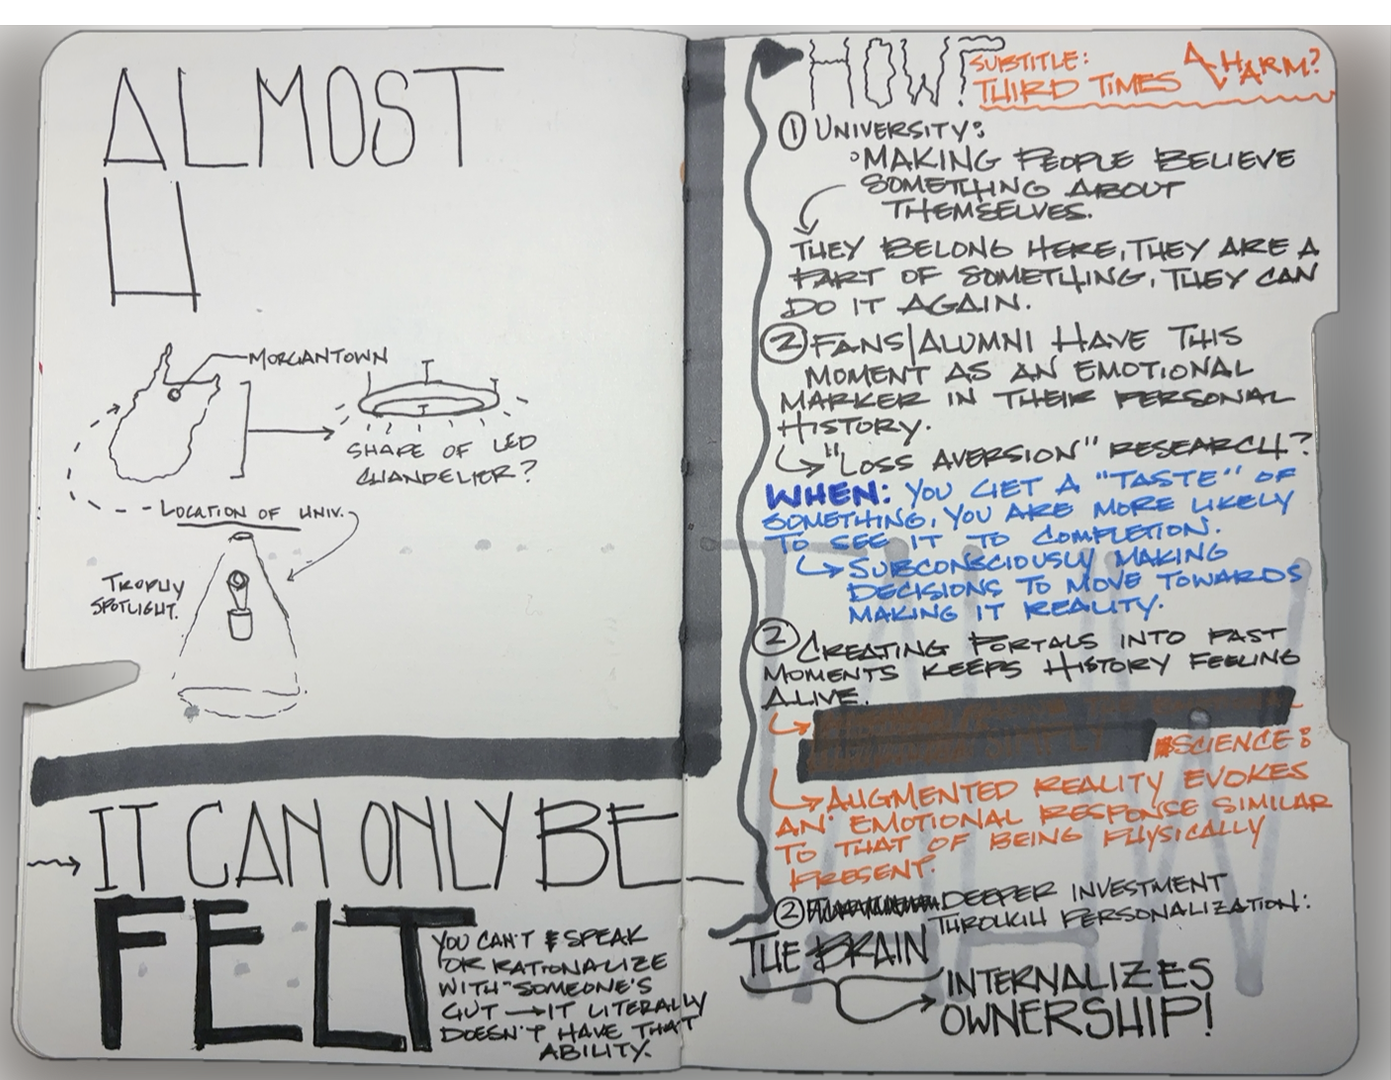 ALMOST
MORGANTOWN
SHAPE OF LED
CHANDELIER?
LOCATION OF UNIV.
TROPHY
SPOTLIGHT.
IT CAN ONLY BE
FELT
YOU CAN'T SPEAK
OR RATIONALIZE
WITH SOMEONE'S
GUT → IT LITERALLY
DOESN'T HAVE THAT
ABILITY.
HOW?
SUBTITLE:
THIRD TIMES A HARM?
① UNIVERSITY:
• MAKING PEOPLE BELIEVE
SOMETHING ABOUT
THEMSELVES.
THEY BELONG HERE, THEY ARE A
PART OF SOMETHING, THEY CAN
DO IT AGAIN.
② FANS/ALUMNI HAVE THIS
MOMENT AS AN EMOTIONAL
MARKER IN THEIR PERSONAL
HISTORY.
↳ "LOSS AVERSION" RESEARCH?
WHEN: YOU GET A "TASTE" OF
SOMETHING, YOU ARE MORE LIKELY
TO SEE IT TO COMPLETION.
↳ SUBCONSCIOUSLY MAKING
DECISIONS TO MOVE TOWARDS
MAKING IT REALITY.
② CREATING PORTALS INTO PAST
MOMENTS KEEPS HISTORY FEELING
ALIVE.
SCIENCE:
↳ AUGMENTED REALITY EVOKES
AN EMOTIONAL RESPONSE SIMILAR
TO THAT OF BEING PHYSICALLY
PRESENT.
② DEEPER INVESTMENT
THROUGH PERSONALIZATION:
THE BRAIN
INTERNALIZES
OWNERSHIP!